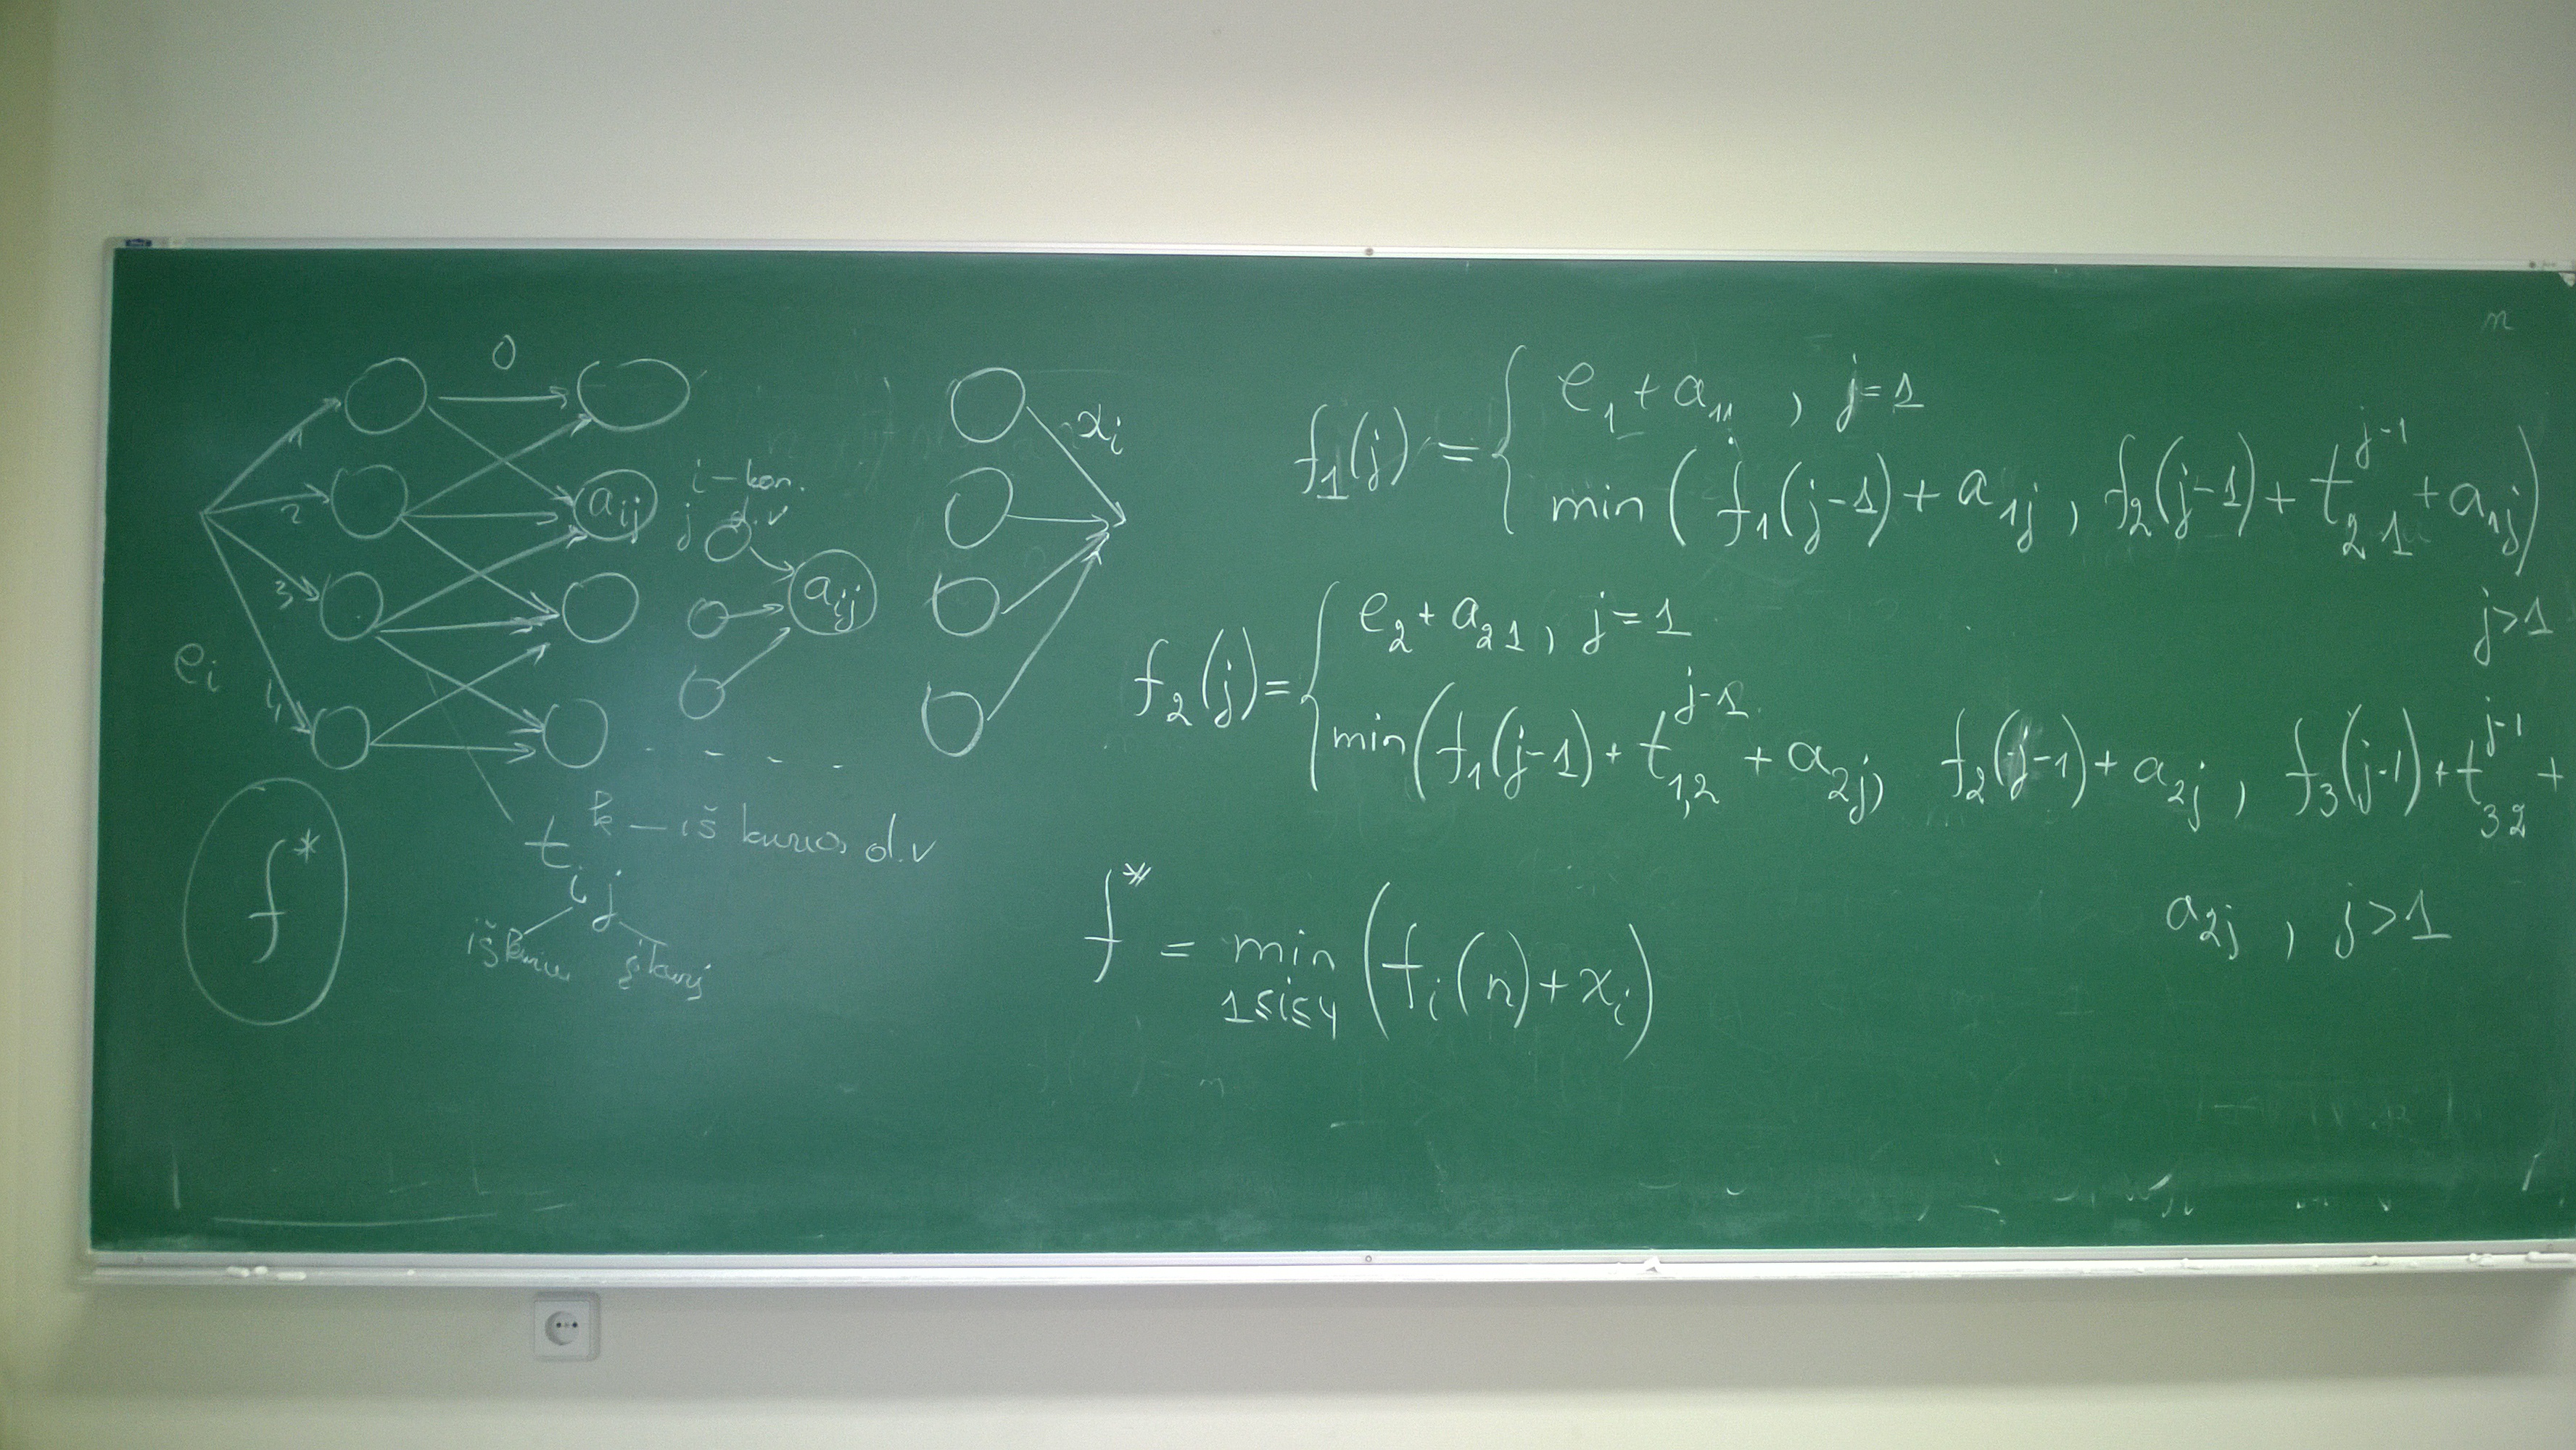 0
1
2
3
4
e_i
a_{ij}
i – kon.
j d.v
a_{ij}
x_i
f*
t_{ij}^k – iš kurios d.v
iš kurio į kurį
n
f_1(j) = { e_1 + a_{11} , j=1
min ( f_1(j-1) + a_{1j} , f_2(j-1) + t_{21}^{j-1} + a_{1j} )
j>1
f_2(j) = { e_2 + a_{21} , j=1
min ( f_1(j-1) + t_{1,2}^{j-1} + a_{2j} , f_2(j-1) + a_{2j} , f_3(j-1) + t_{32}^{j-1} +
a_{2j} , j>1
f* = min_{1≤i≤4} ( f_i(n) + x_i )